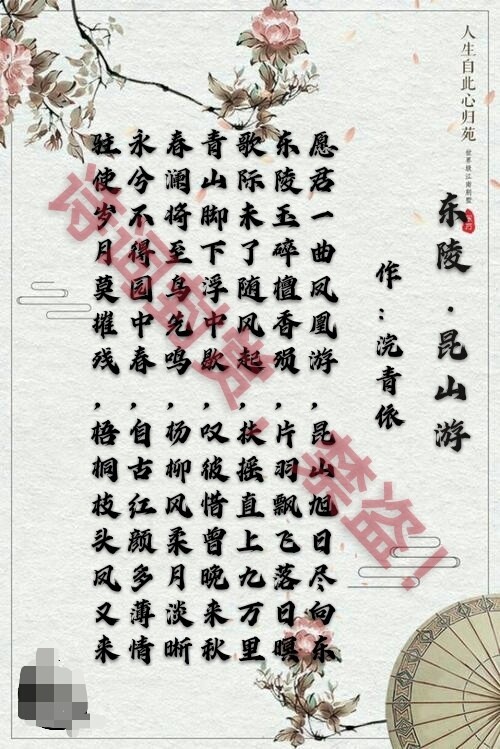 人生自此心归苑
世界级江南别墅
东陵·昆山游
作：浣青依
愿君一曲凤凰游，昆山旭日尽向东
东陵玉碎檀香殒，片羽飘飞落日暝
歌际未了随风起，扶摇直上九万里
青山脚下浮中歇，叹彼惜曾晚来秋
春澜将至鸟先鸣，杨柳风柔月淡晰
永兮不得园中春，自古红颜多薄情
驻使岁月莫摧残，梧桐枝头凤又来
诗词鉴赏，禁盗！